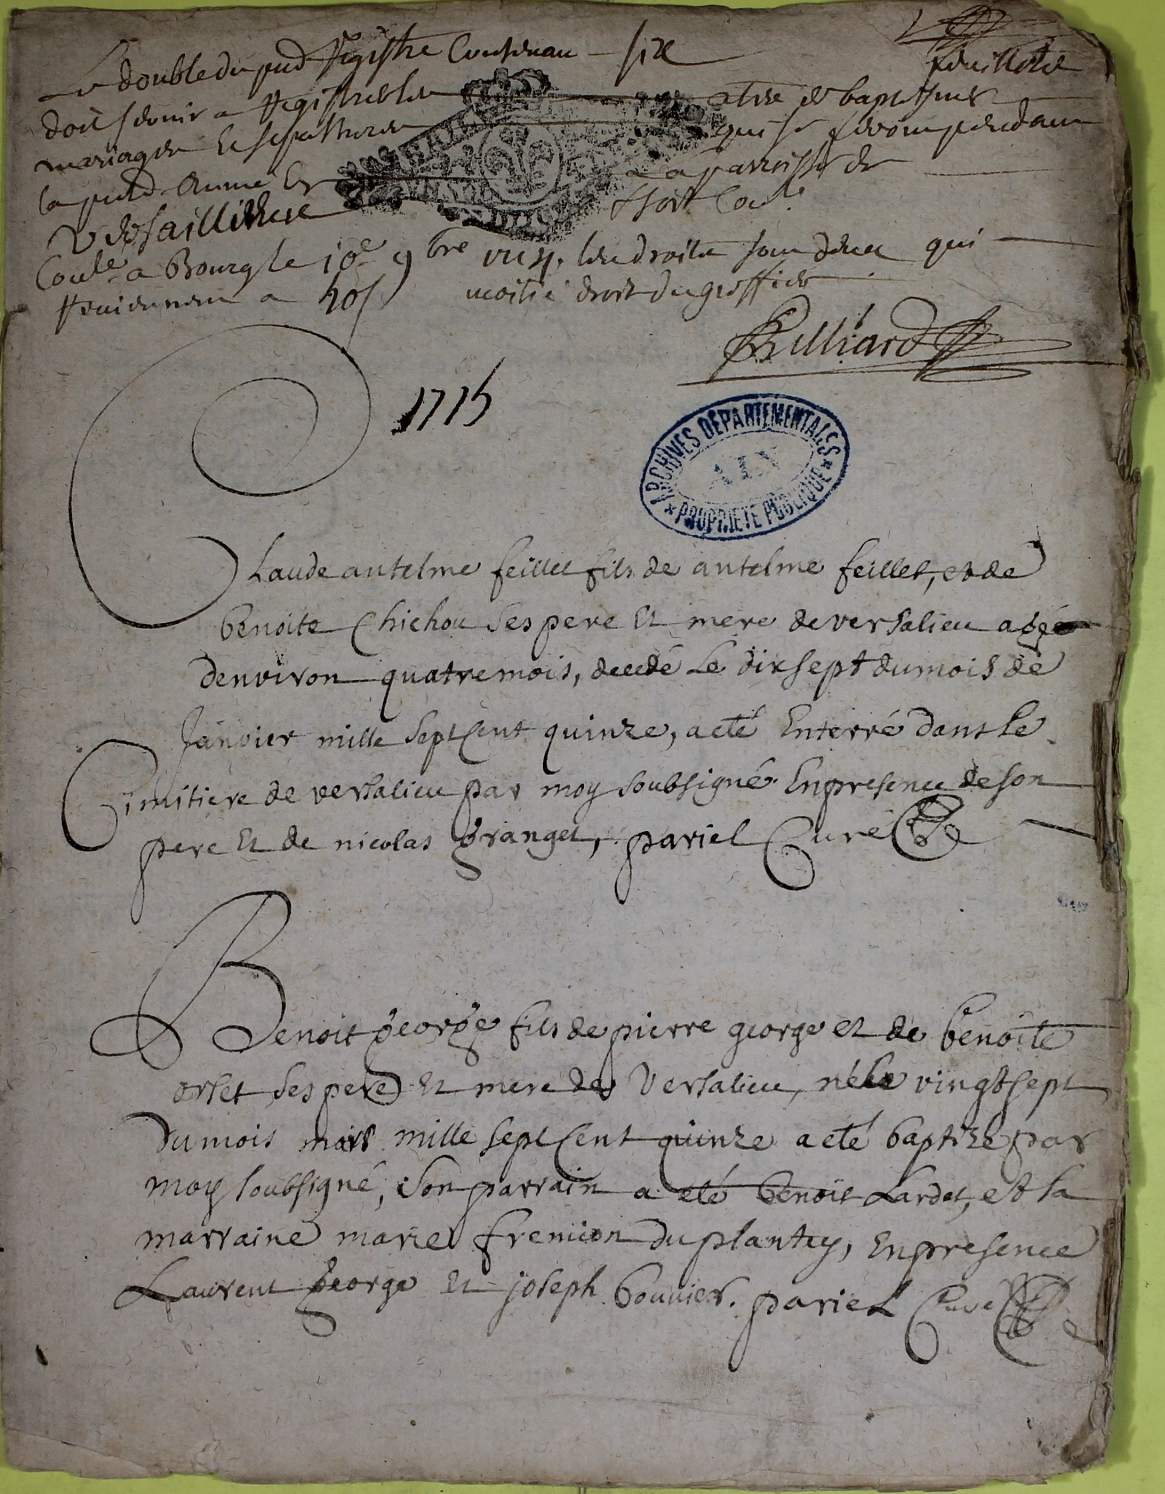 Le double du pnt Registre Contenan six feuillets
doit servir a Registrer les actes de baptesmes
mariages et sepultures qui se feront pendant
la pnte Année En La parroisse de
Versaillieu
Coté a Bourg le 10e 9bre les droits sont deux qui
Reviennent a 20s moitié droit du greffier
Billiard
1715
ARCHIVES DÉPARTEMENTALES
AIN
PROPRIÉTÉ PUBLIQUE
Claude antelme feillet fils de antelme feillet, et de
benoite Chichou ses pere Et mere de versalieu agé
denviron quatre mois, decedé Le dix sept du mois de
Janvier mille sept Cent quinze, a eté Enterré dans le
Cimitiere de versalieu par moy soubsigné En presence de son
pere Et de nicolas granget, pariel Curé
Benoit george fils de pierre george et de benoite
orset ses pere Et mere de Versalieu, né le vingt sept
du mois mars mille sept Cent quinze a eté baptizé par
moy soubsigné, son parrain a eté benoit Lardet, et sa
marraine marie fremion du plantey, En presence
Laurent george Et joseph bouvier. pariel Curé